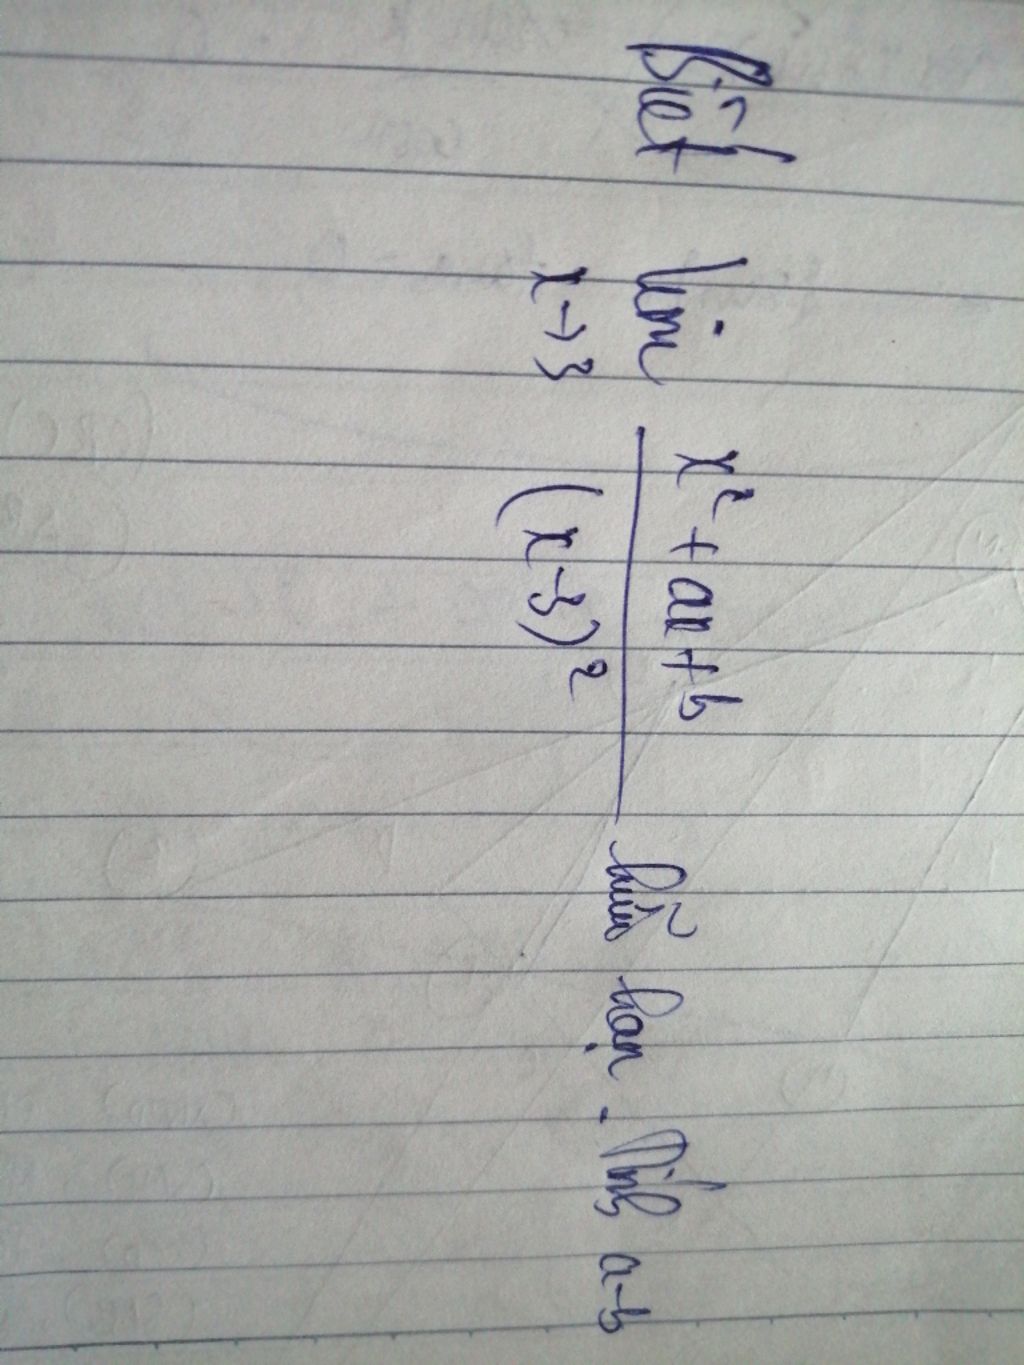 Biết lim x→3 x² + ax + b / (x-3)² hữu hạn. Tính a-b